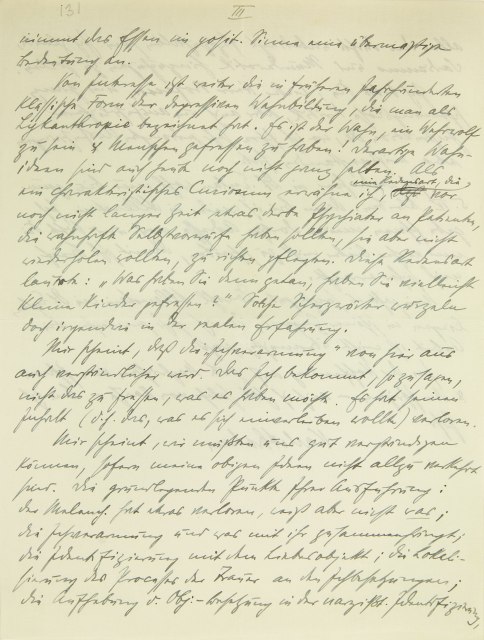 131
III
nimmt das Essen im posit. Sinne eine übermäßige
Bedeutung an.
Von Interesse ist weiter die in früheren Jahrhunderten
klassische Form der depressiven Wahnbildung, die man als
Lykanthropie bezeichnet hat. Es ist der Wahn, ein Wehrwolf
zu sein & Menschen gefressen zu haben! Derartige Wahn-
ideen sind auch heute noch nicht ganz selten. Als
ein charakteristisches Curiosum erwähne ich, eine Redensart, die, vor
noch nicht langer Zeit etwas derbe Psychiater an Patienten,
die wahnhafte Selbstvorwürfe haben sollten, sie aber nicht
wiederholen wollten, zu richten pflegten. Diese Redensart
lautete: „Was haben Sie denn getan, haben Sie vielleicht
kleine Kinder gefressen?" Solche Scherzwörter wurzeln
doch irgendwie in der realen Erfahrung.
Mir scheint, daß die „Ichverarmung" von hier aus
auch verständlicher wird. Das Ich bekommt, sozusagen,
nicht das zu fressen, was es haben möchte. Es hat seinen
Inhalt (d. h. das, was es sich einverleiben wollte) verloren.
Mir scheint, wir müßten uns gut verständigen
können, sofern meine obigen Ideen nicht allzu verkehrt
sind. Die grundlegenden Punkte Ihrer Ausführung:
der Melanch. hat etwas verloren, weiß aber nicht was;
die Ichverarmung und was mit ihr zusammenhängt;
die Identifizierung mit dem Liebesobjekt; die Lokali-
sierung des Processes der Trauer an den Ichbesetzungen;
die Aufhebung d. Obj.-besetzung in der narzißt. Identifizierung,